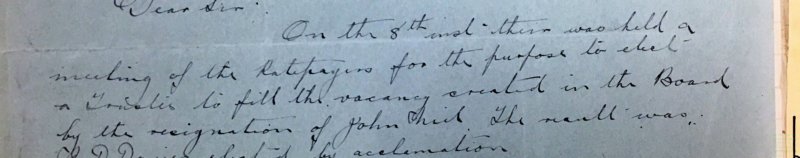 Dear Sir:
On the 8th inst. there was held a
meeting of the Ratepayers for the purpose to elect
a Trustee to fill the vacancy created in the Board
by the resignation of John The result was,
elected by acclamation